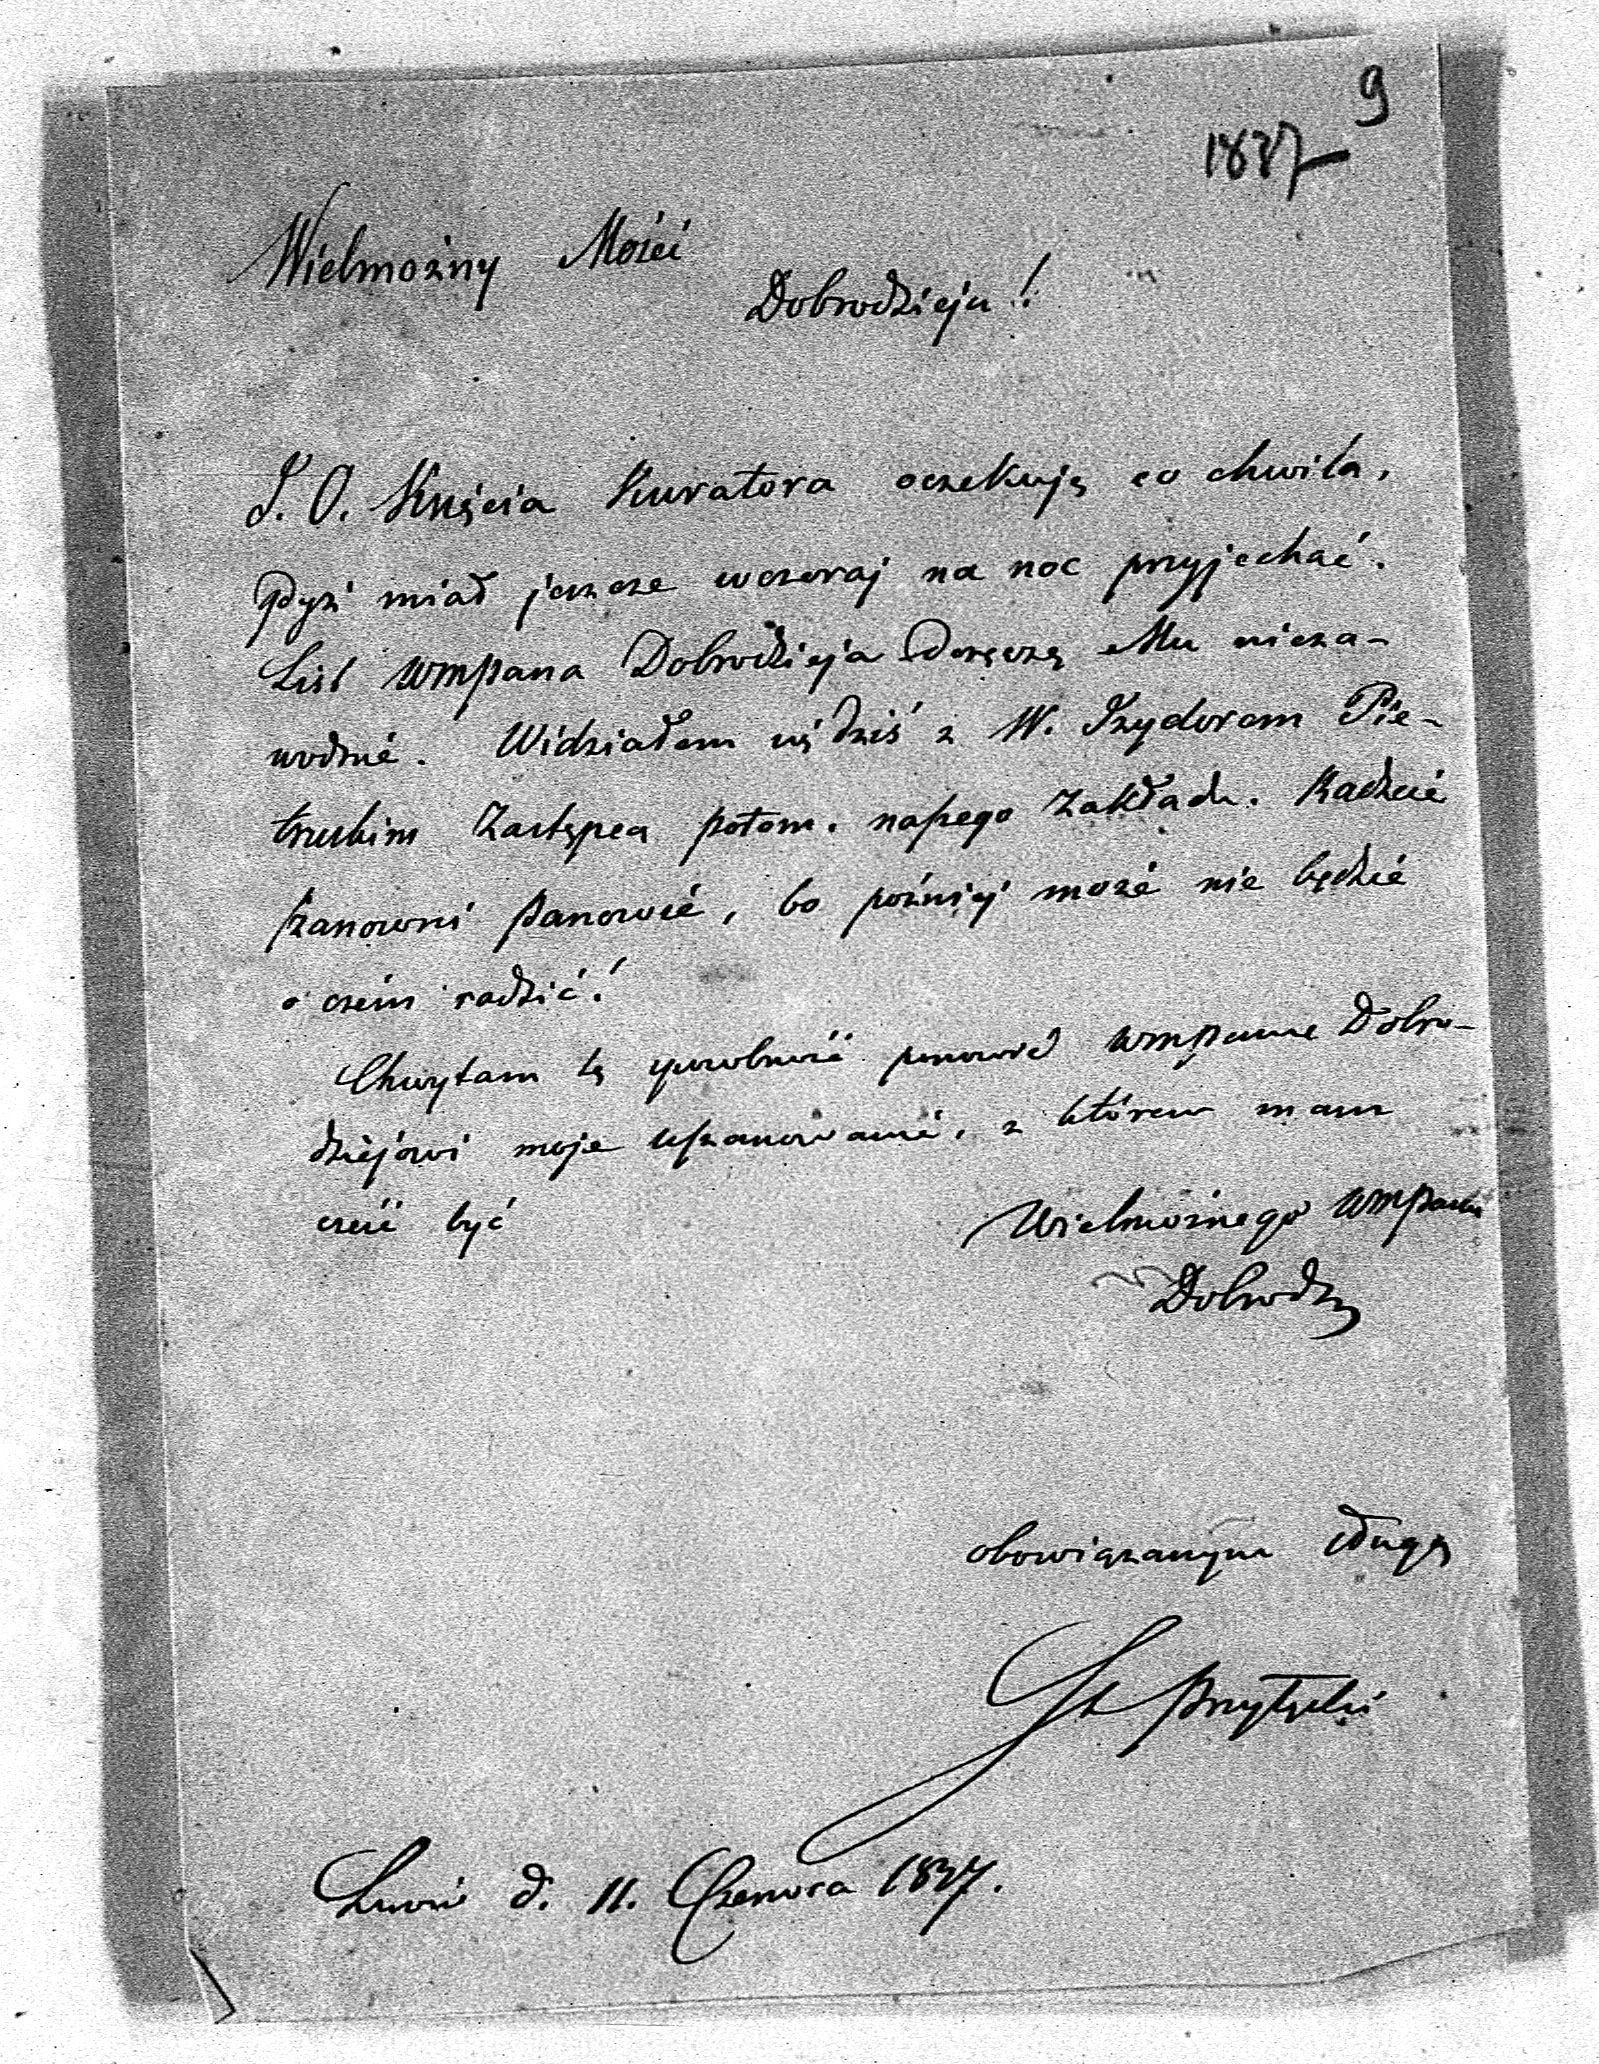 9
1837
Wielmożny Mości
Dobrodzieju!
J. O. Knięcia Kuratora oczekuję co chwila,
gdyż miał jeszcze wczoraj na noc przyjechać.
List WMPana Dobrodzieja doręczę Mu nieza-
wodnie. Widziałem się dziś z W. Izydorem Pie-
truskim Zastępcą potom. naszego Zakładu. Radźcie
szanowni Panowie, bo poźniej może nie będzie
o czém radzić!
Chwytam tę sposobność ponowić WMPanu Dobro-
dziejowi moje uszanowanie, z którem mam
cześć być
Wielmożnego WMPana
Dobrodz
obowiązanym sługą
St Przyłęcki
Lwów d. 11. Czerwca 1837.